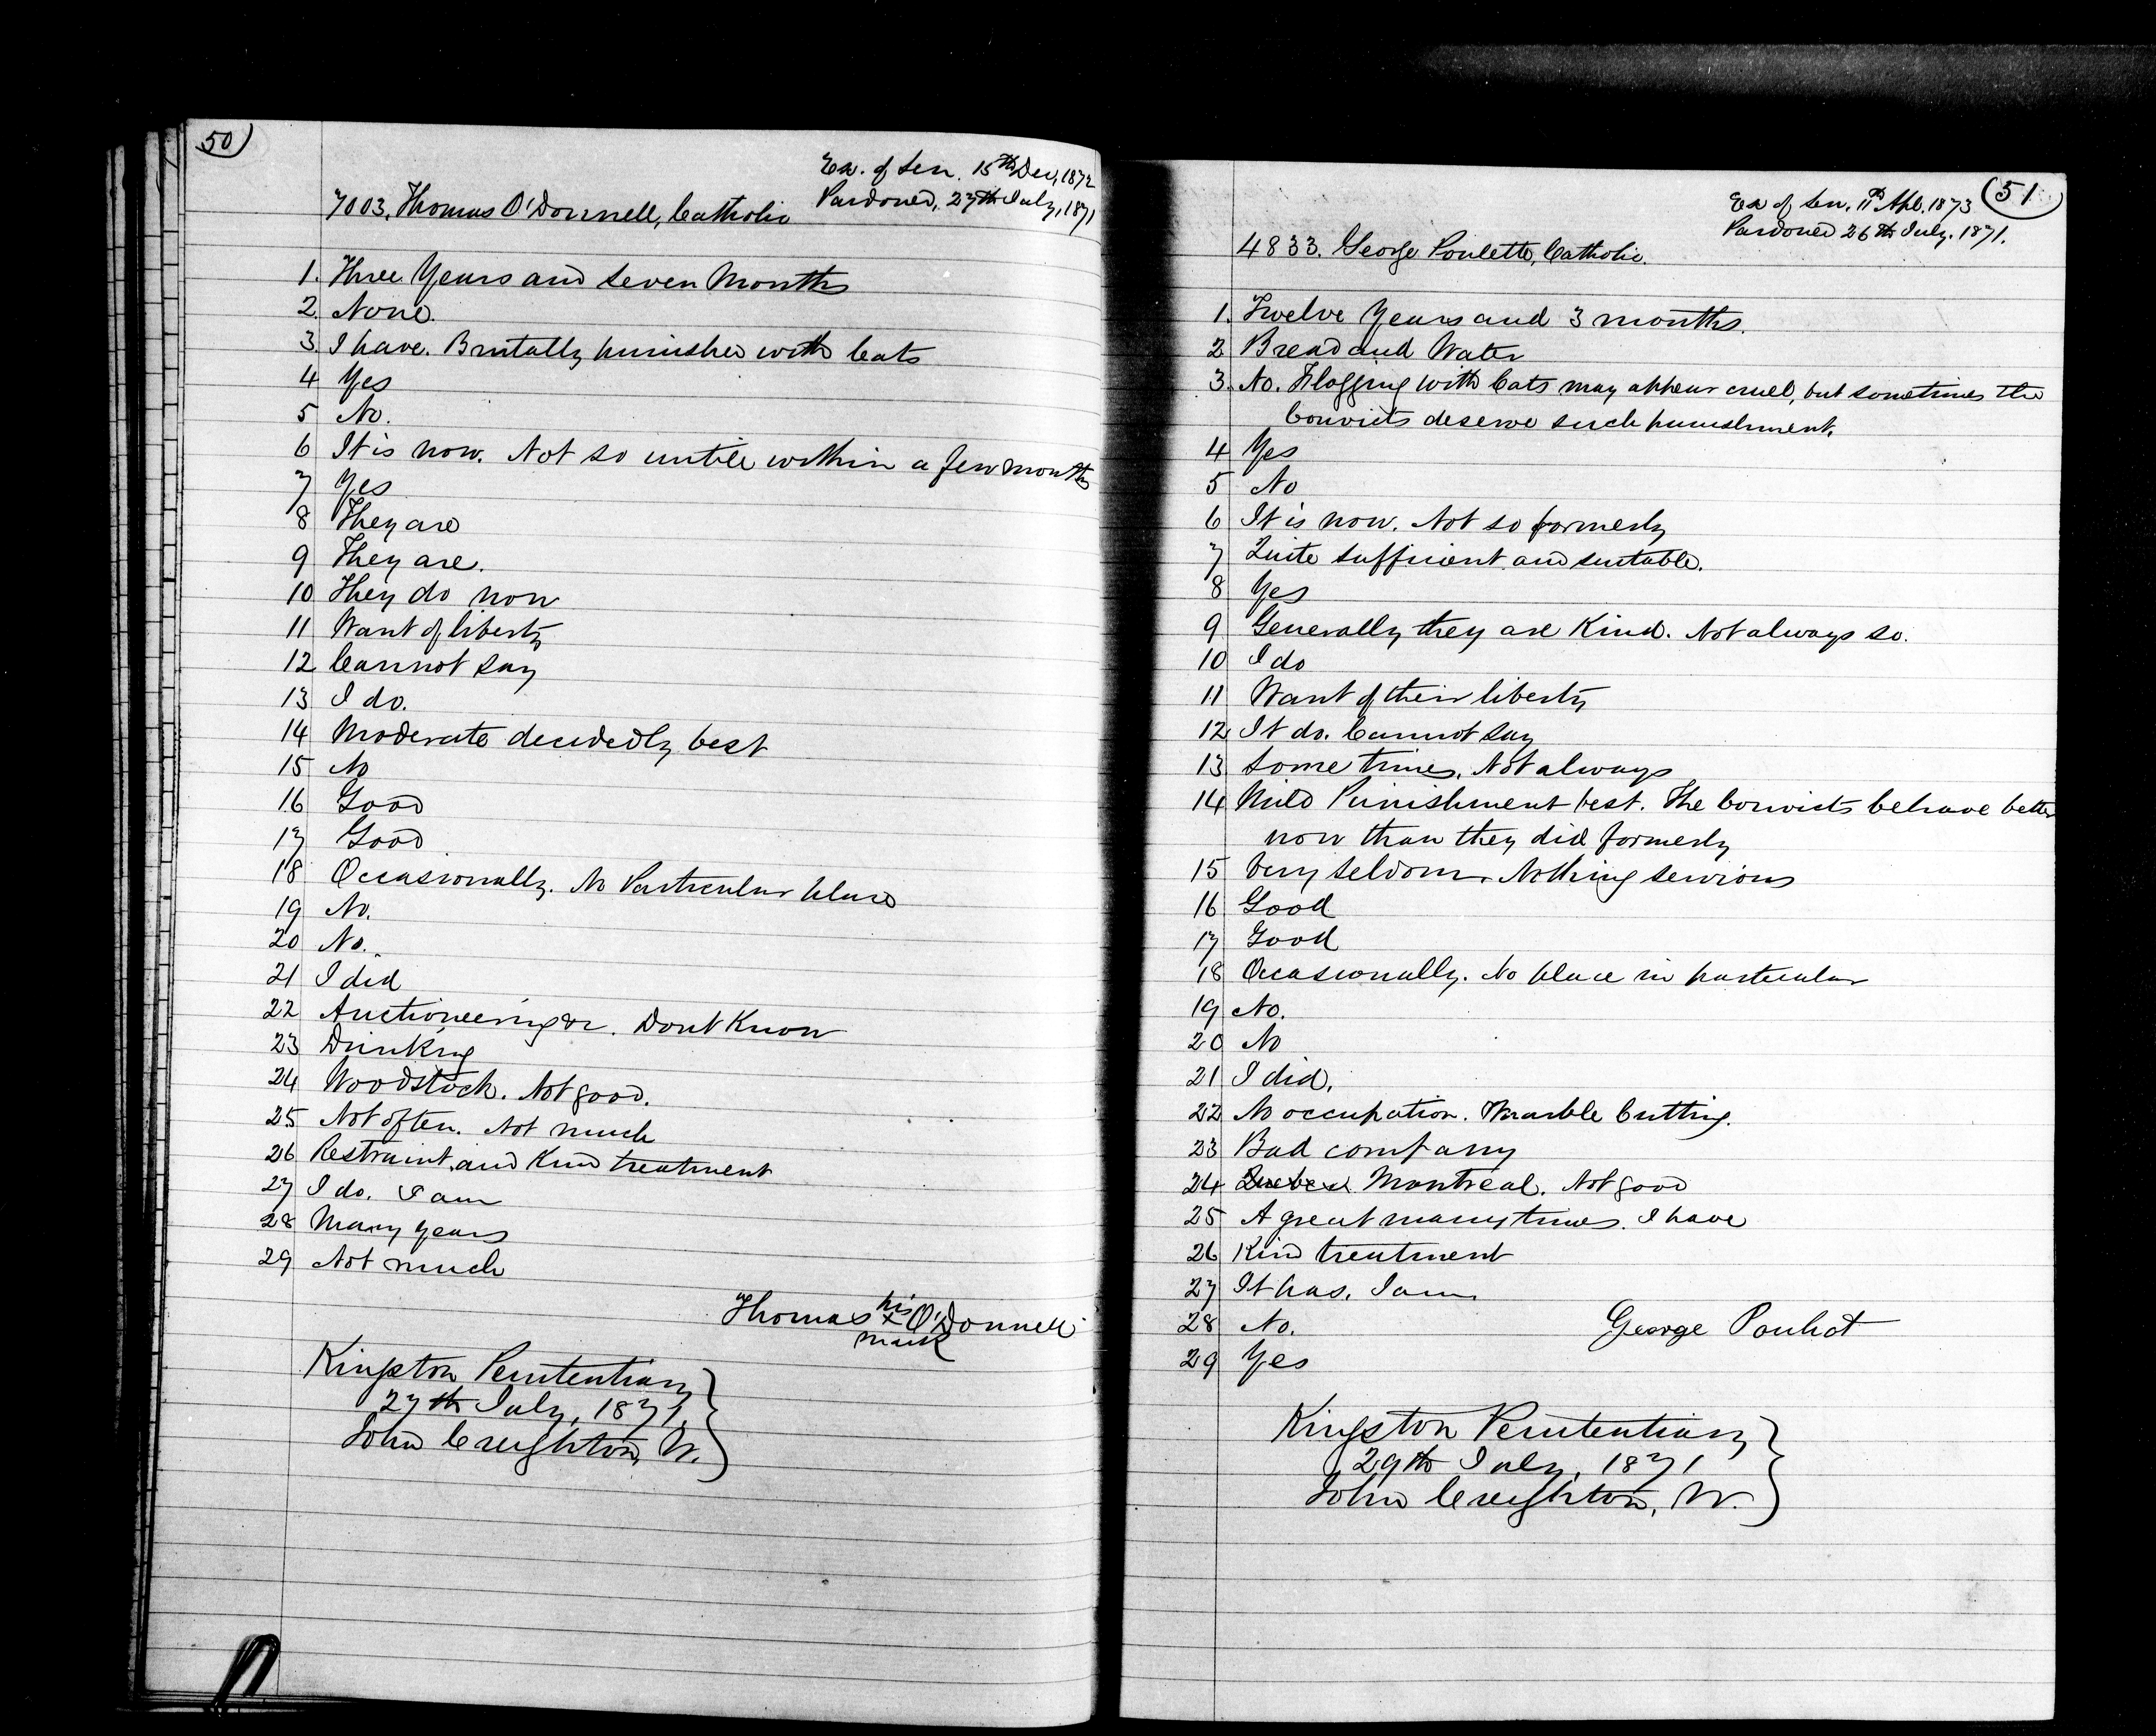 50
Ex. of Sen. 15th Dec, 1872
Pardoned, 27th July, 1871
7003. Thomas O'Donnell, Catholic
1. Three Years and Seven Months
2. None.
3. I have. Brutally punished with Cats
4 Yes
5 No.
6 It is now. Not so untill within a few months
7 Yes
8 They are
9 They are.
10 They do now
11 Want of liberty
12 Cannot say
13 I do.
14 Moderate decidedly best
15 No
16 Good
17 Good
18 Occasionally. No Particular place
19 No.
20 No.
21 I did
22 Auctioneering &c. Dont Know
23 Drinking
24 Woodstock. Not good.
25 Not often. Not much
26 Restraint and Kind treatment
27 I do. I am
28 Many years
29 Not much
Thomas his x mark O'Donnell
Kingston Penitentiary
27th July, 1871,
John Creighton, W.
51
Ex of Sen. 11th Apl. 1873
Pardoned 26th July. 1871.
4833. George Poulette, Catholic.
1. Twelve Years and 3 months.
2 Bread and Water
3. No. Flogging with Cats may appear cruel, but sometimes the
Convicts deserve such punishment.
4 Yes
5 No
6 It is now. Not so formerly
7 Quite sufficient and suitable.
8 Yes
9 Generally they are Kind. Not always so.
10 I do
11 Want of their liberty
12 It do. Cannot say
13 Some times. Not always
14 Mild Punishment best. The Convicts behave better
now than they did formerly
15 Very seldom. Nothing serious
16 Good
17 Good
18 Occasionally. No place in particular
19 No.
20 No
21 I did.
22 No occupation. Marble Cutting.
23 Bad company
24 Quebec Montreal. Not good
25 A great many times. I have
26 Kind treatment
27 It has. I am
28 No.
George Pouliot
29 Yes
Kingston Penitentiary
29th July, 1871
John Creighton, W.